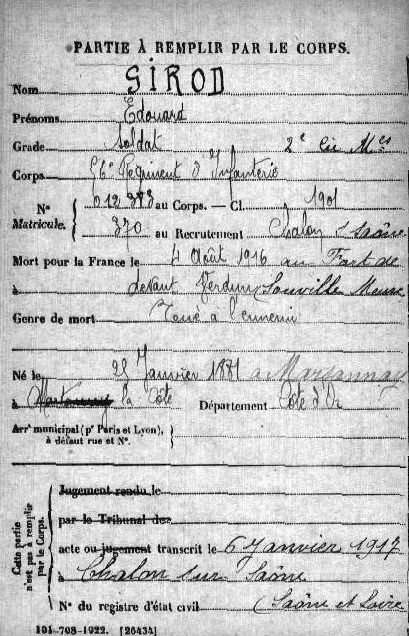 PARTIE À REMPLIR PAR LE CORPS.
Nom GIROD
Prénoms Edouard
Grade Soldat 2e Cie Mses
Corps 56e Régiment d'Infanterie
N° Matricule. 012383 au Corps. — Cl. 1901
370 au Recrutement Chalon s/ Saône
Mort pour la France le 4 Août 1916 au Fort de
à devant Verdun Souville Meuse
Genre de mort Tué à l'ennemi
Né le 25 Janvier 1881 à Marsannay
à la Côte Département Côte d'Or
Arrt municipal (pr Paris et Lyon), à défaut rue et N°.
Cette partie n'est pas à remplir par le Corps.
Jugement rendu le
par le Tribunal de
acte ou jugement transcrit le 6 Janvier 1917
à Chalon sur Saône
N° du registre d'état civil (Saône et Loire
101-708-1922. [26434]